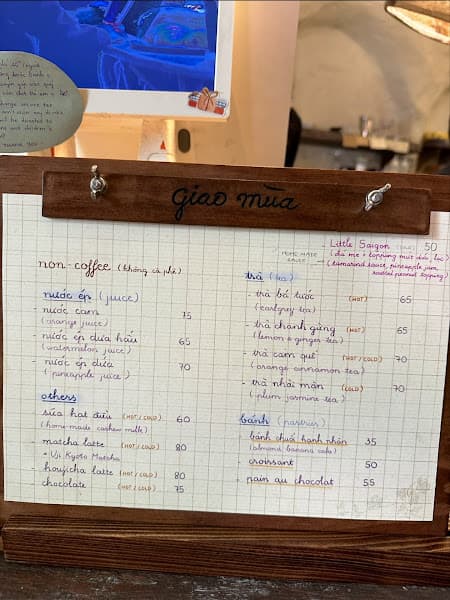 giao mùa
Little Saigon (COLD) 50
HOME MADE SAUCE → (đá me + topping mứt dứa, lạc)
(tamarind sauce, pineapple jam, roasted peanut topping)
non-coffee (không cà phê)
nước ép (juice)
- nước cam 75
(orange juice)
- nước ép dưa hấu 65
(watermelon juice)
- nước ép dứa 70
(pineapple juice)
others
- sữa hạt điều (HOT / COLD) 60
(home-made cashew milk)
- matcha latte (HOT / COLD) 80
* Uji Kyoto Matcha
- houjicha latte (HOT / COLD) 80
- chocolate (HOT / COLD) 75
trà (tea)
- trà bá tước (HOT) 65
(earlgrey tea)
- trà chanh gừng (HOT) 65
(lemon & ginger tea)
- trà cam quế (HOT / COLD) 70
(orange cinnamon tea)
- trà nhài mận (COLD) 70
(plum jasmine tea)
bánh (pastries)
- bánh chuối hạnh nhân 35
(almond banana cake)
- croissant 50
- pain au chocolat 55